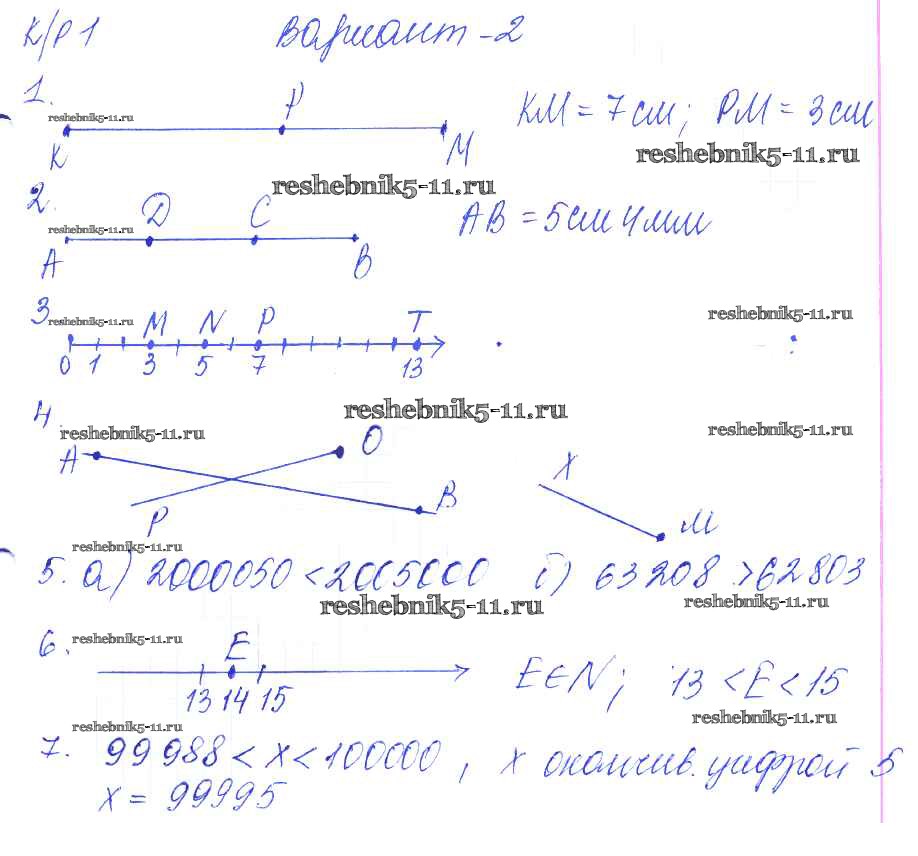 К/Р 1 Вариант-2
1. reshebnik5-11.ru P КМ = 7см; РМ = 3см
K M reshebnik5-11.ru
reshebnik5-11.ru
2. reshebnik5-11.ru D C АВ = 5см 4мм
A B
3 reshebnik5-11.ru M N P T reshebnik5-11.ru
0 1 3 5 7 13
4 reshebnik5-11.ru
reshebnik5-11.ru reshebnik5-11.ru
A O X
P B M
reshebnik5-11.ru
5. а) 2000050 < 2005000 б) 63208 > 62803
reshebnik5-11.ru reshebnik5-11.ru
6. reshebnik5-11.ru E
13 14 15 E∈N; 13 < E < 15
reshebnik5-11.ru
reshebnik5-11.ru
7. 99988 < x < 100000, x окончив. цифрой 5
x = 99995